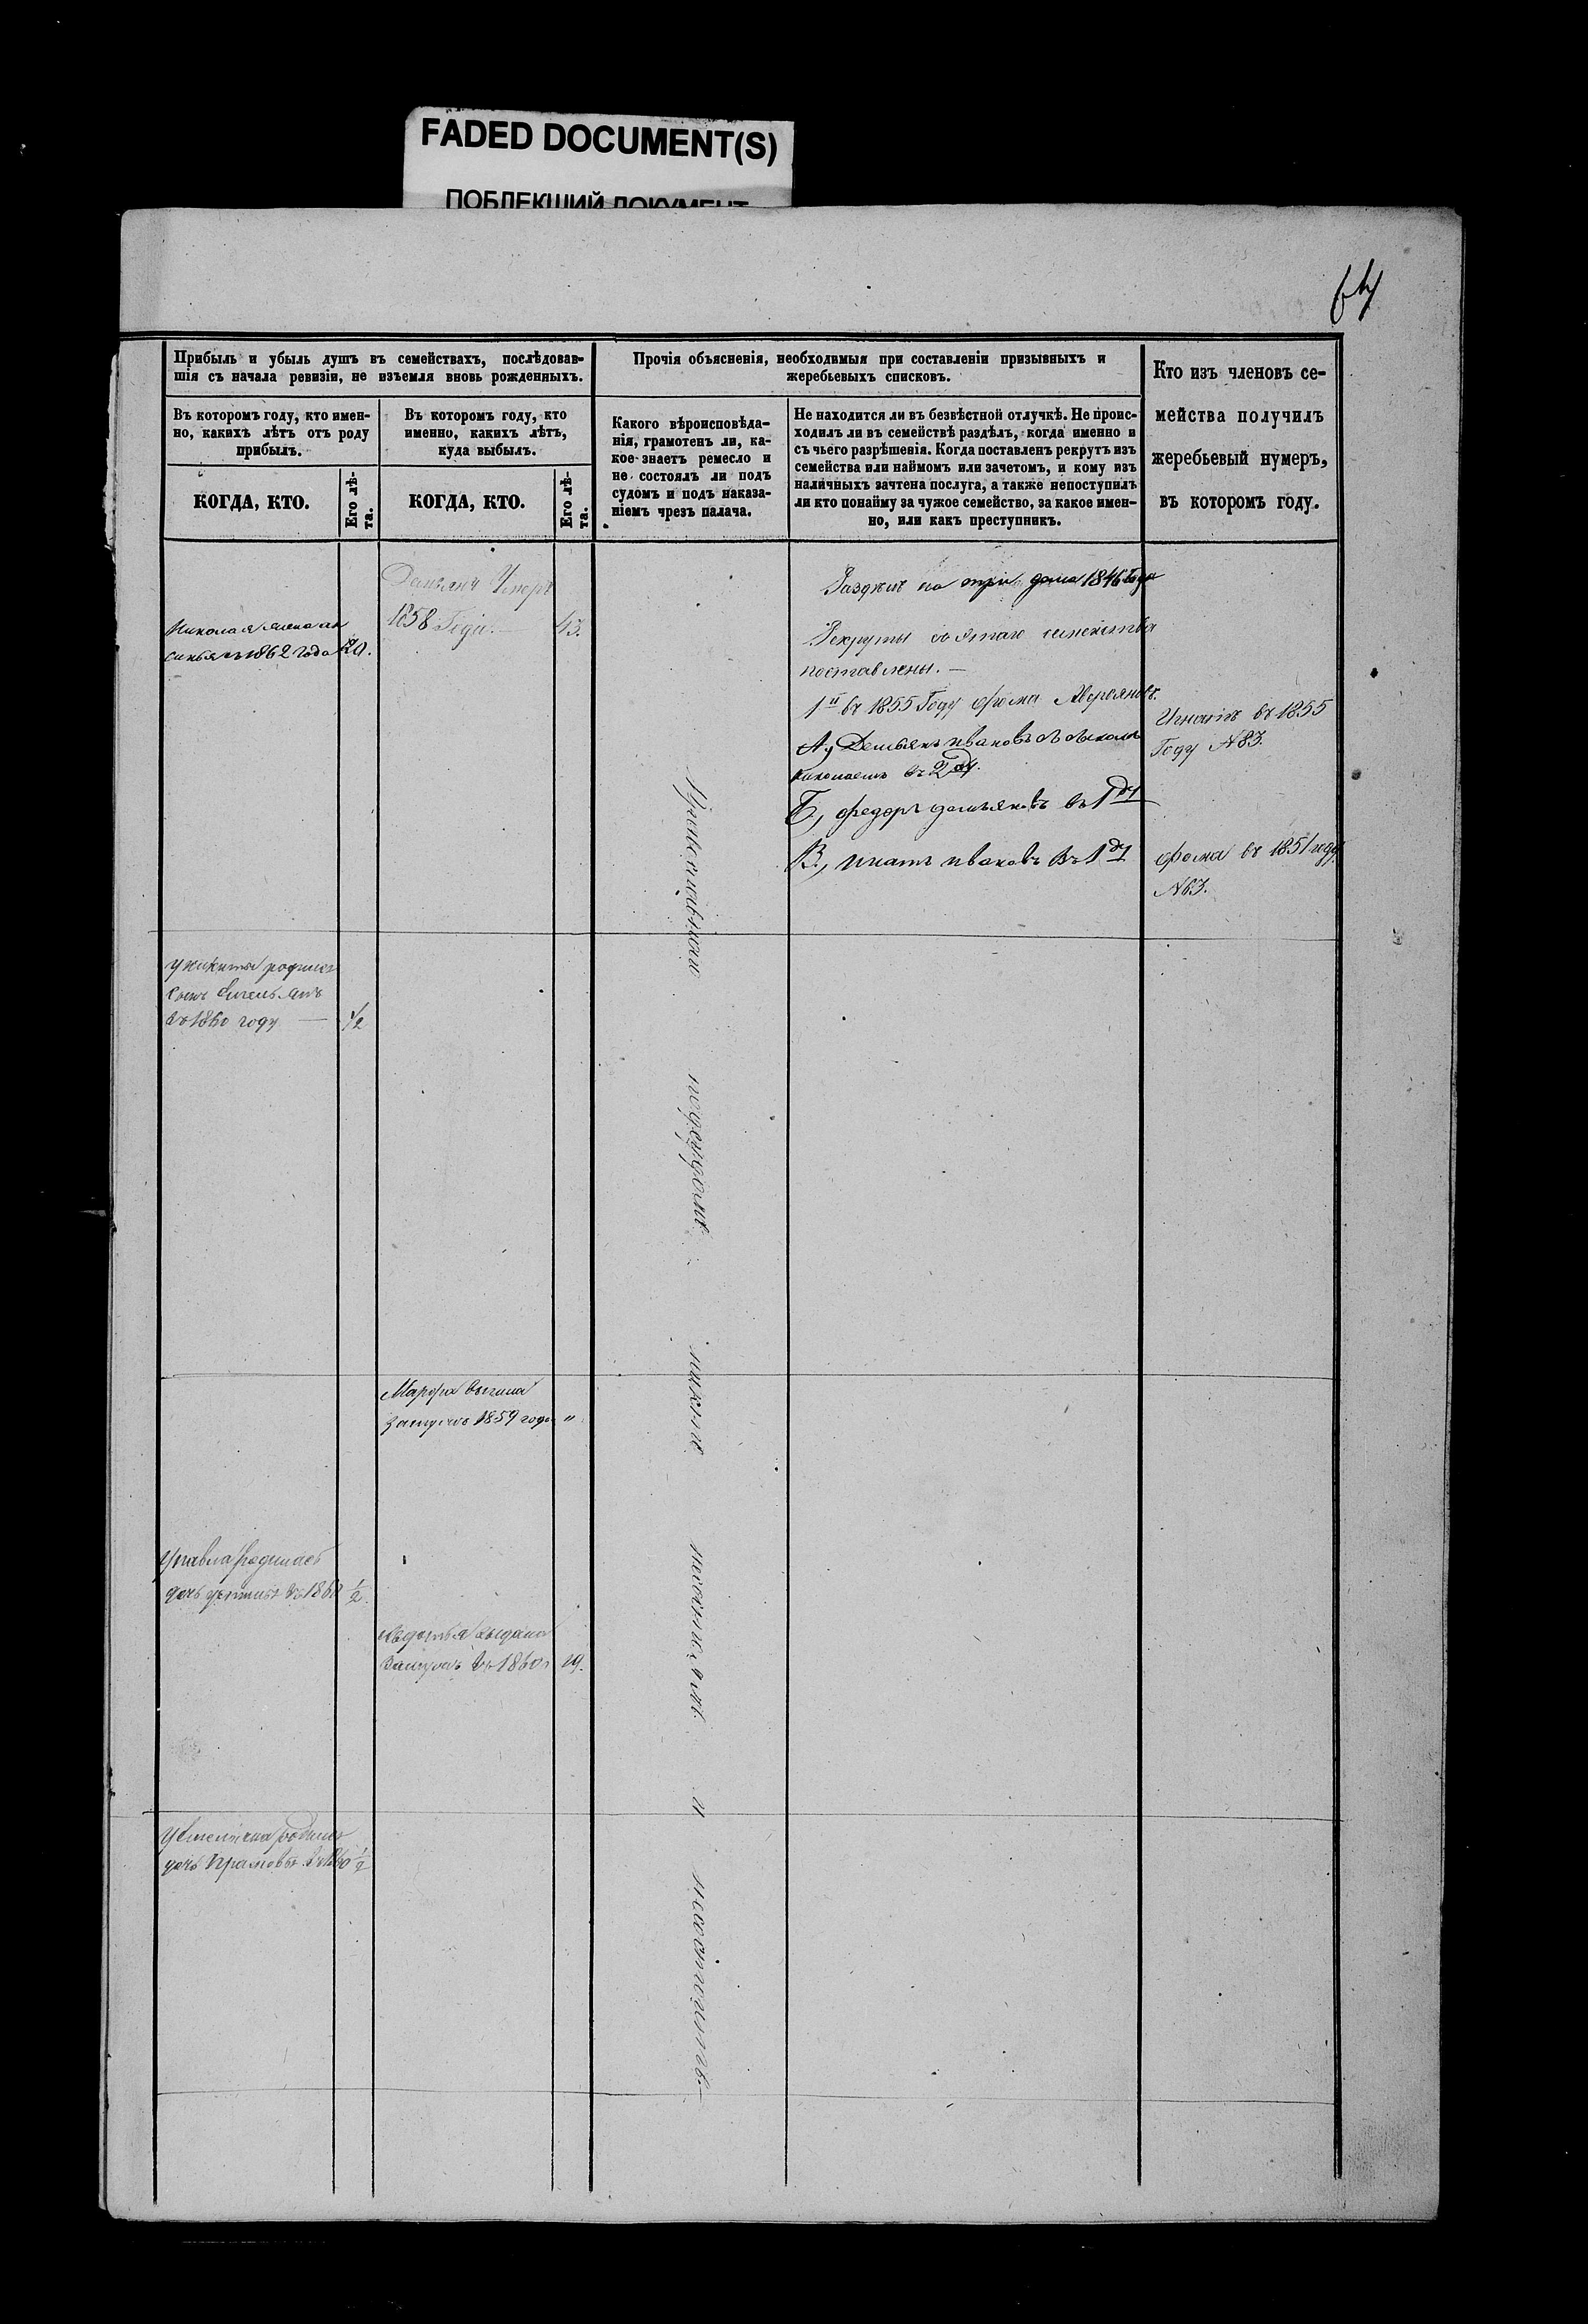 FADED DOCUMENT(S)
ПОБЛЕКШИЙ ДОКУМЕНТ
64
Прибыль и убыль душъ въ семействахъ, послѣдовав-
шія съ начала ревизіи, не изъемля вновь рожденныхъ.
Въ которомъ году, кто имен-
но, какихъ лѣтъ отъ роду
прибылъ.
КОГДА, КТО.
Его лѣ-
та.
Въ которомъ году, кто
именно, какихъ лѣтъ,
куда выбылъ.
КОГДА, КТО.
Его лѣ-
та.
Прочія объясненія, необходимыя при составленіи призывныхъ и
жеребьевыхъ списковъ.
Какого вѣроисповѣда-
нія, грамотенъ ли, ка-
кое знаетъ ремесло и
не состоялъ ли подъ
судомъ и подъ наказа-
ніемъ чрезъ палача.
Не находится ли въ безвѣстной отлучкѣ. Не проис-
ходилъ ли въ семействѣ раздѣлъ, когда именно и
съ чьего разрѣшенія. Когда поставленъ рекрутъ изъ
семейства или наймомъ или зачетомъ, и кому изъ
наличныхъ зачтена послуга, а также непоступилъ
ли кто понайму за чужое семейство, за какое имен-
но, или какъ преступникъ.
Кто изъ членовъ се-
мейства получилъ
жеребьевый нумеръ,
въ которомъ году.
Николая
1862 года 20.
Демьянъ Умеръ
1858 Года. 43.
Раздѣлъ на три дома 1846 Года
Рекруты съ этаго семейства
поставлены.
1й въ 1855 Году Фома Аверьяновъ.
А, Демьянъ Ивановъ съ
Николаемъ въ 2
Б, Федоръ Демьяновъ въ 1
В, Игнатъ Ивановъ въ 1
Игнатъ въ 1855
Году №83.
Фома въ 1851 году
№63.
у Никиты родился
сынъ Емельянъ
въ 1860 году 1/2
Марфа вышла
замужъ 1859 года "
у Павла родилась
дочь въ 1860 1/2.
Авдотья выдана
Замужъ въ 1860 19.
у Емельяна родилась
дочь Прасковья въ 1860 1/2